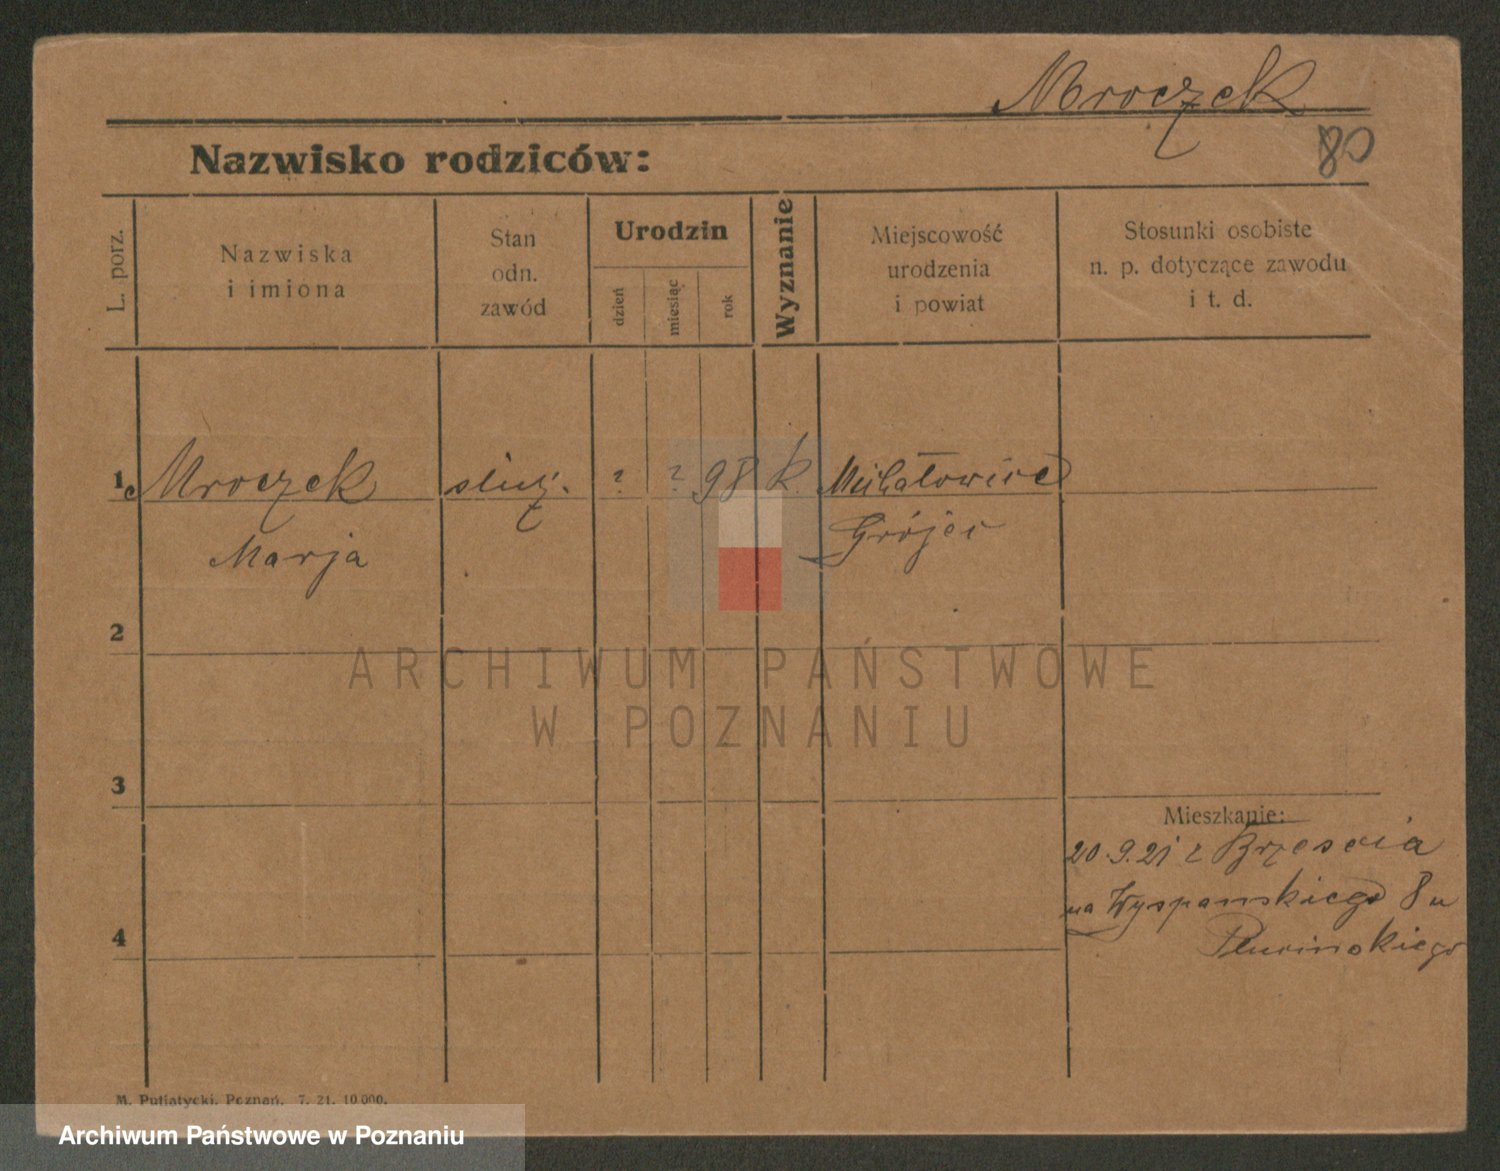 Mroczek
80
Nazwisko rodziców:
L. porz.
Nazwiska
i imiona
Stan
odn.
zawód
Urodzin
dzień
miesiąc
rok
Wyznanie
Miejscowość
urodzenia
i powiat
Stosunki osobiste
n. p. dotyczące zawodu
i t. d.
1 Mroczek służ. ? ? 98 k. Michałowice
Marja Grójec
2
ARCHIWUM PAŃSTWOWE
W POZNANIU
3
Mieszkanie:
20.9.21 z Brześcia
na Wyspańskiego 8 u
4
M. Putiatycki, Poznań. 7. 21. 10.000.
Archiwum Państwowe w Poznaniu